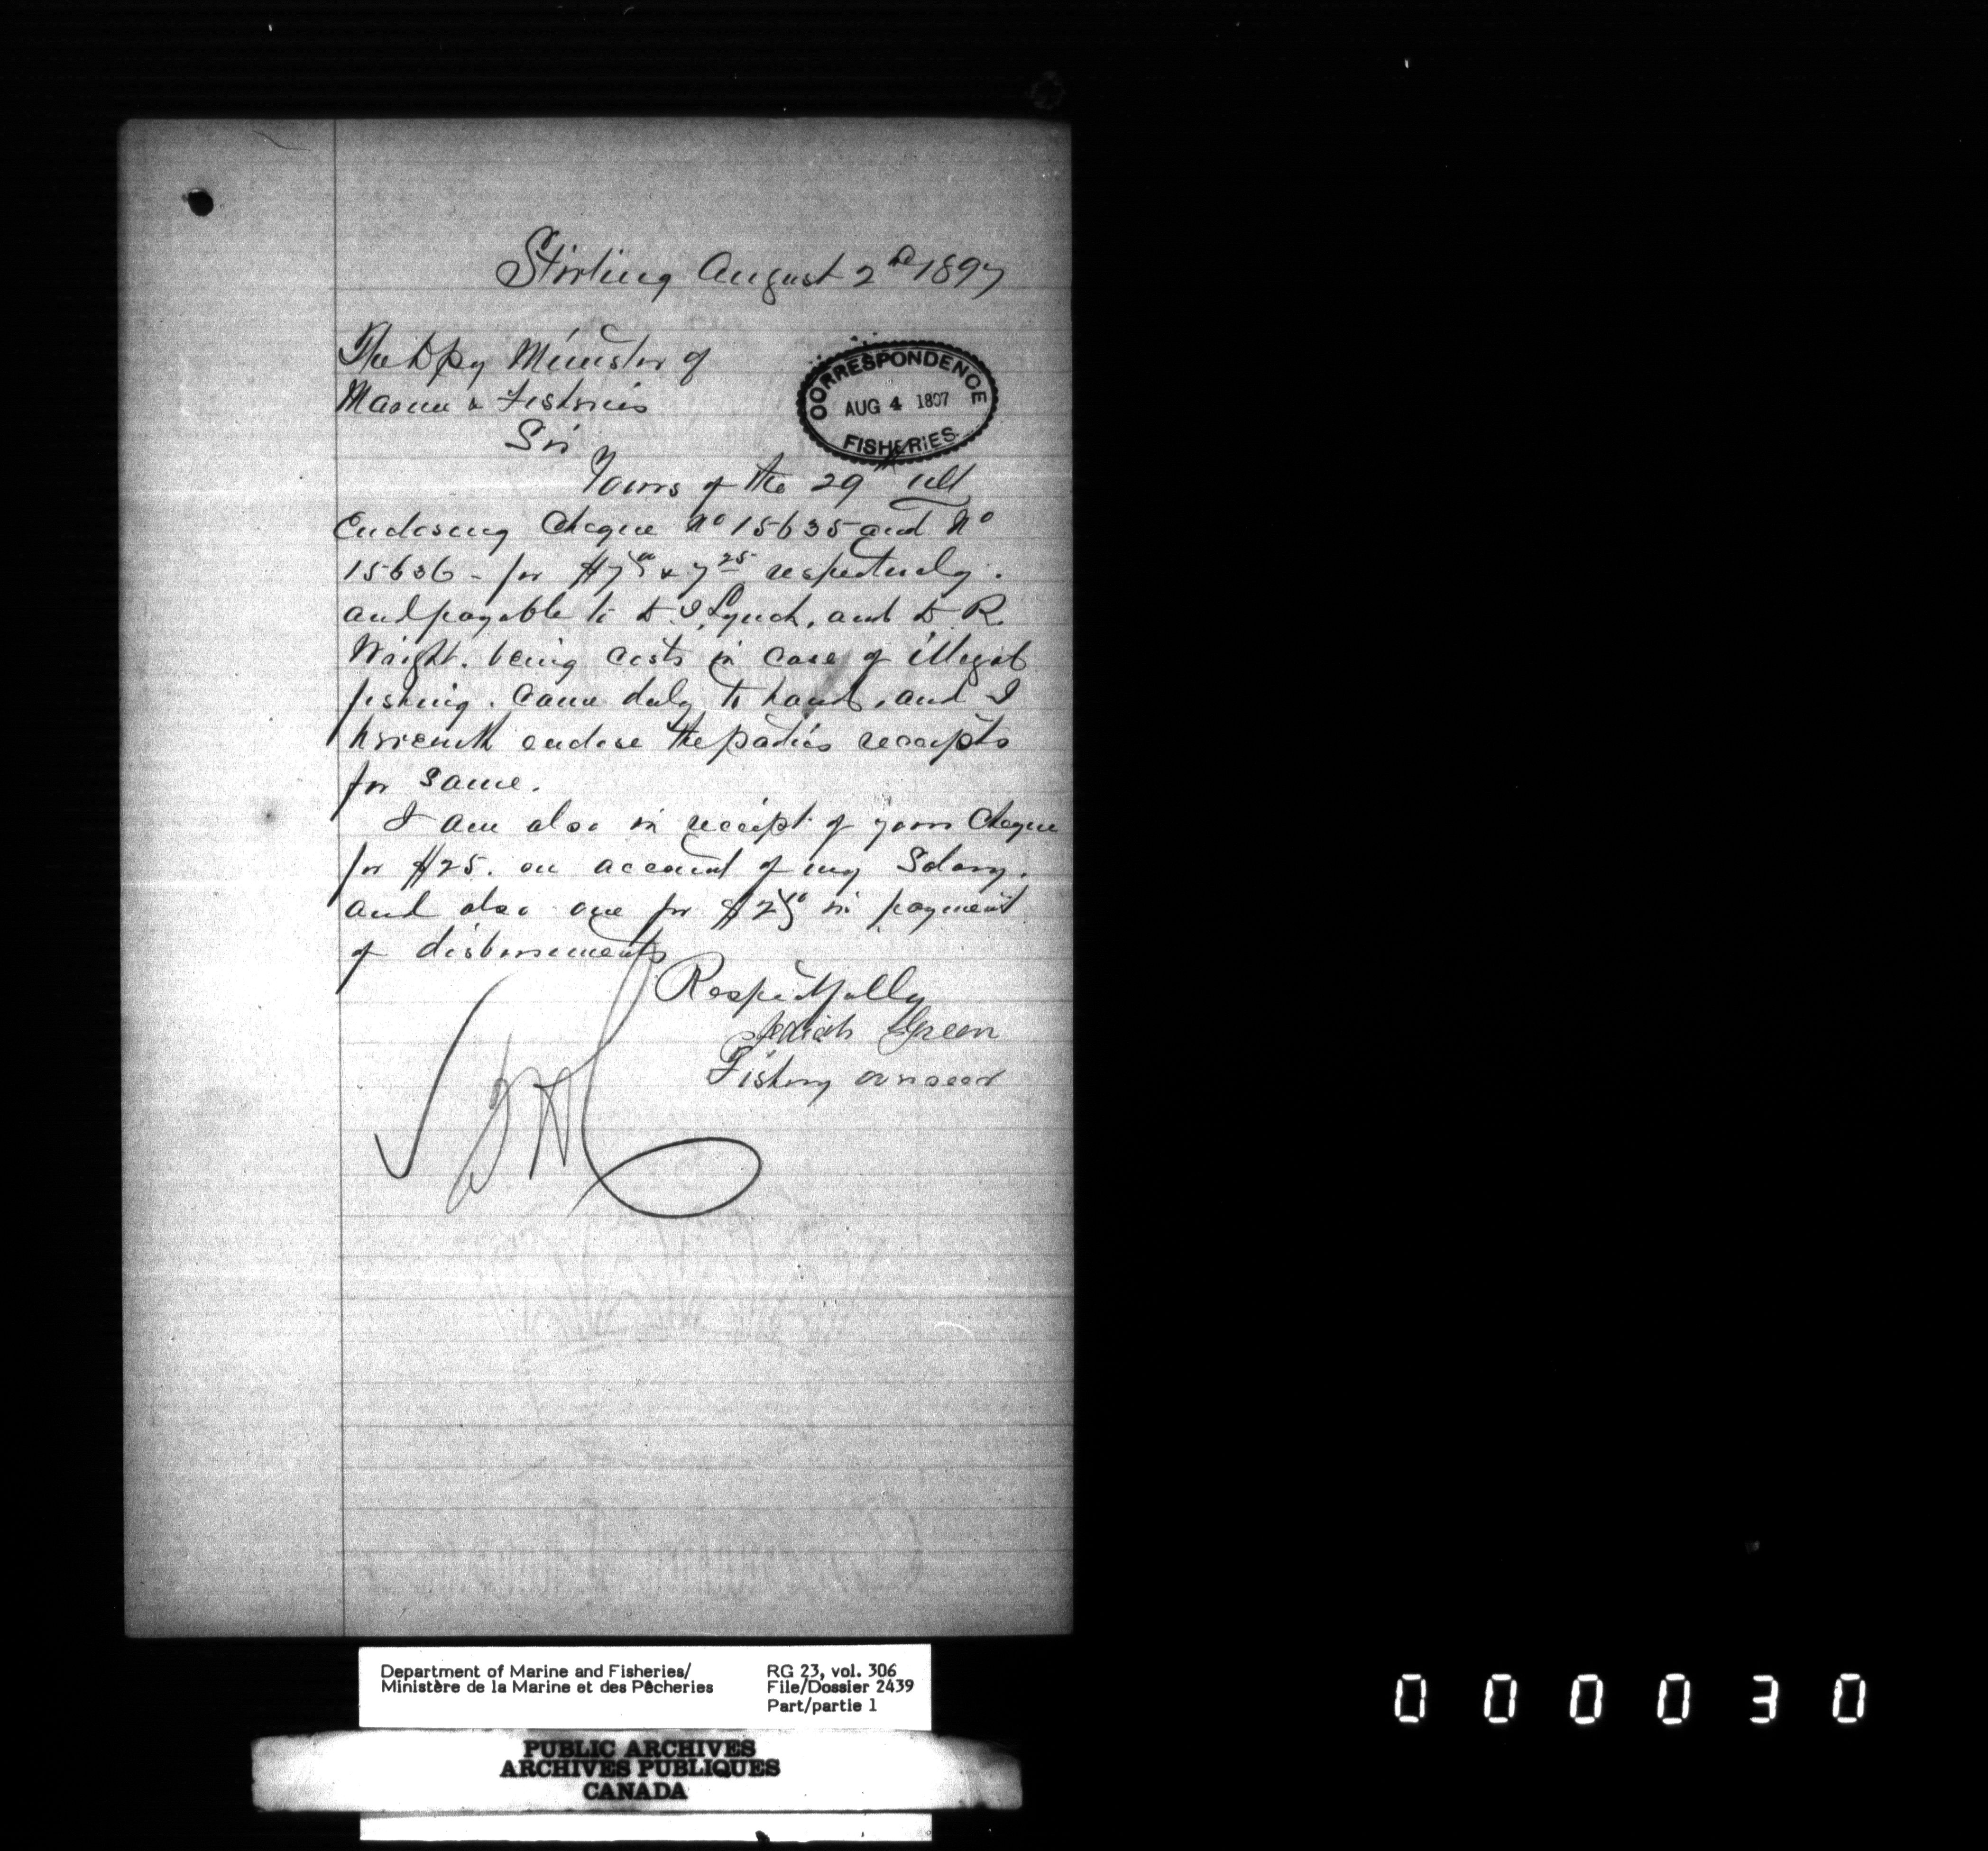 Stirling August 2nd 1897
The Dpy Minister of
Marine & Fisheries
Sir
CORRESPONDENCE
AUG 4 1897
FISHERIES
Yours of the 29th ult
Enclosing Cheque No 15635 and No
15636 - for & 7 25 respectively.
and payable to D. I. Lynch, and D. R.
Wright. being costs in case of illegal
fishing. Came duly to hand, and I
herewith enclose the parties receipts
for same.
I am also in receipt of your Cheque
for $25. on account of my Salary.
and also one for in payment
of disbursements
Respectfully
Green
Fishery overseer
Department of Marine and Fisheries/
Ministère de la Marine et des Pêcheries
RG 23, vol. 306
File/Dossier 2439
Part/partie 1
PUBLIC ARCHIVES
ARCHIVES PUBLIQUES
CANADA
000030